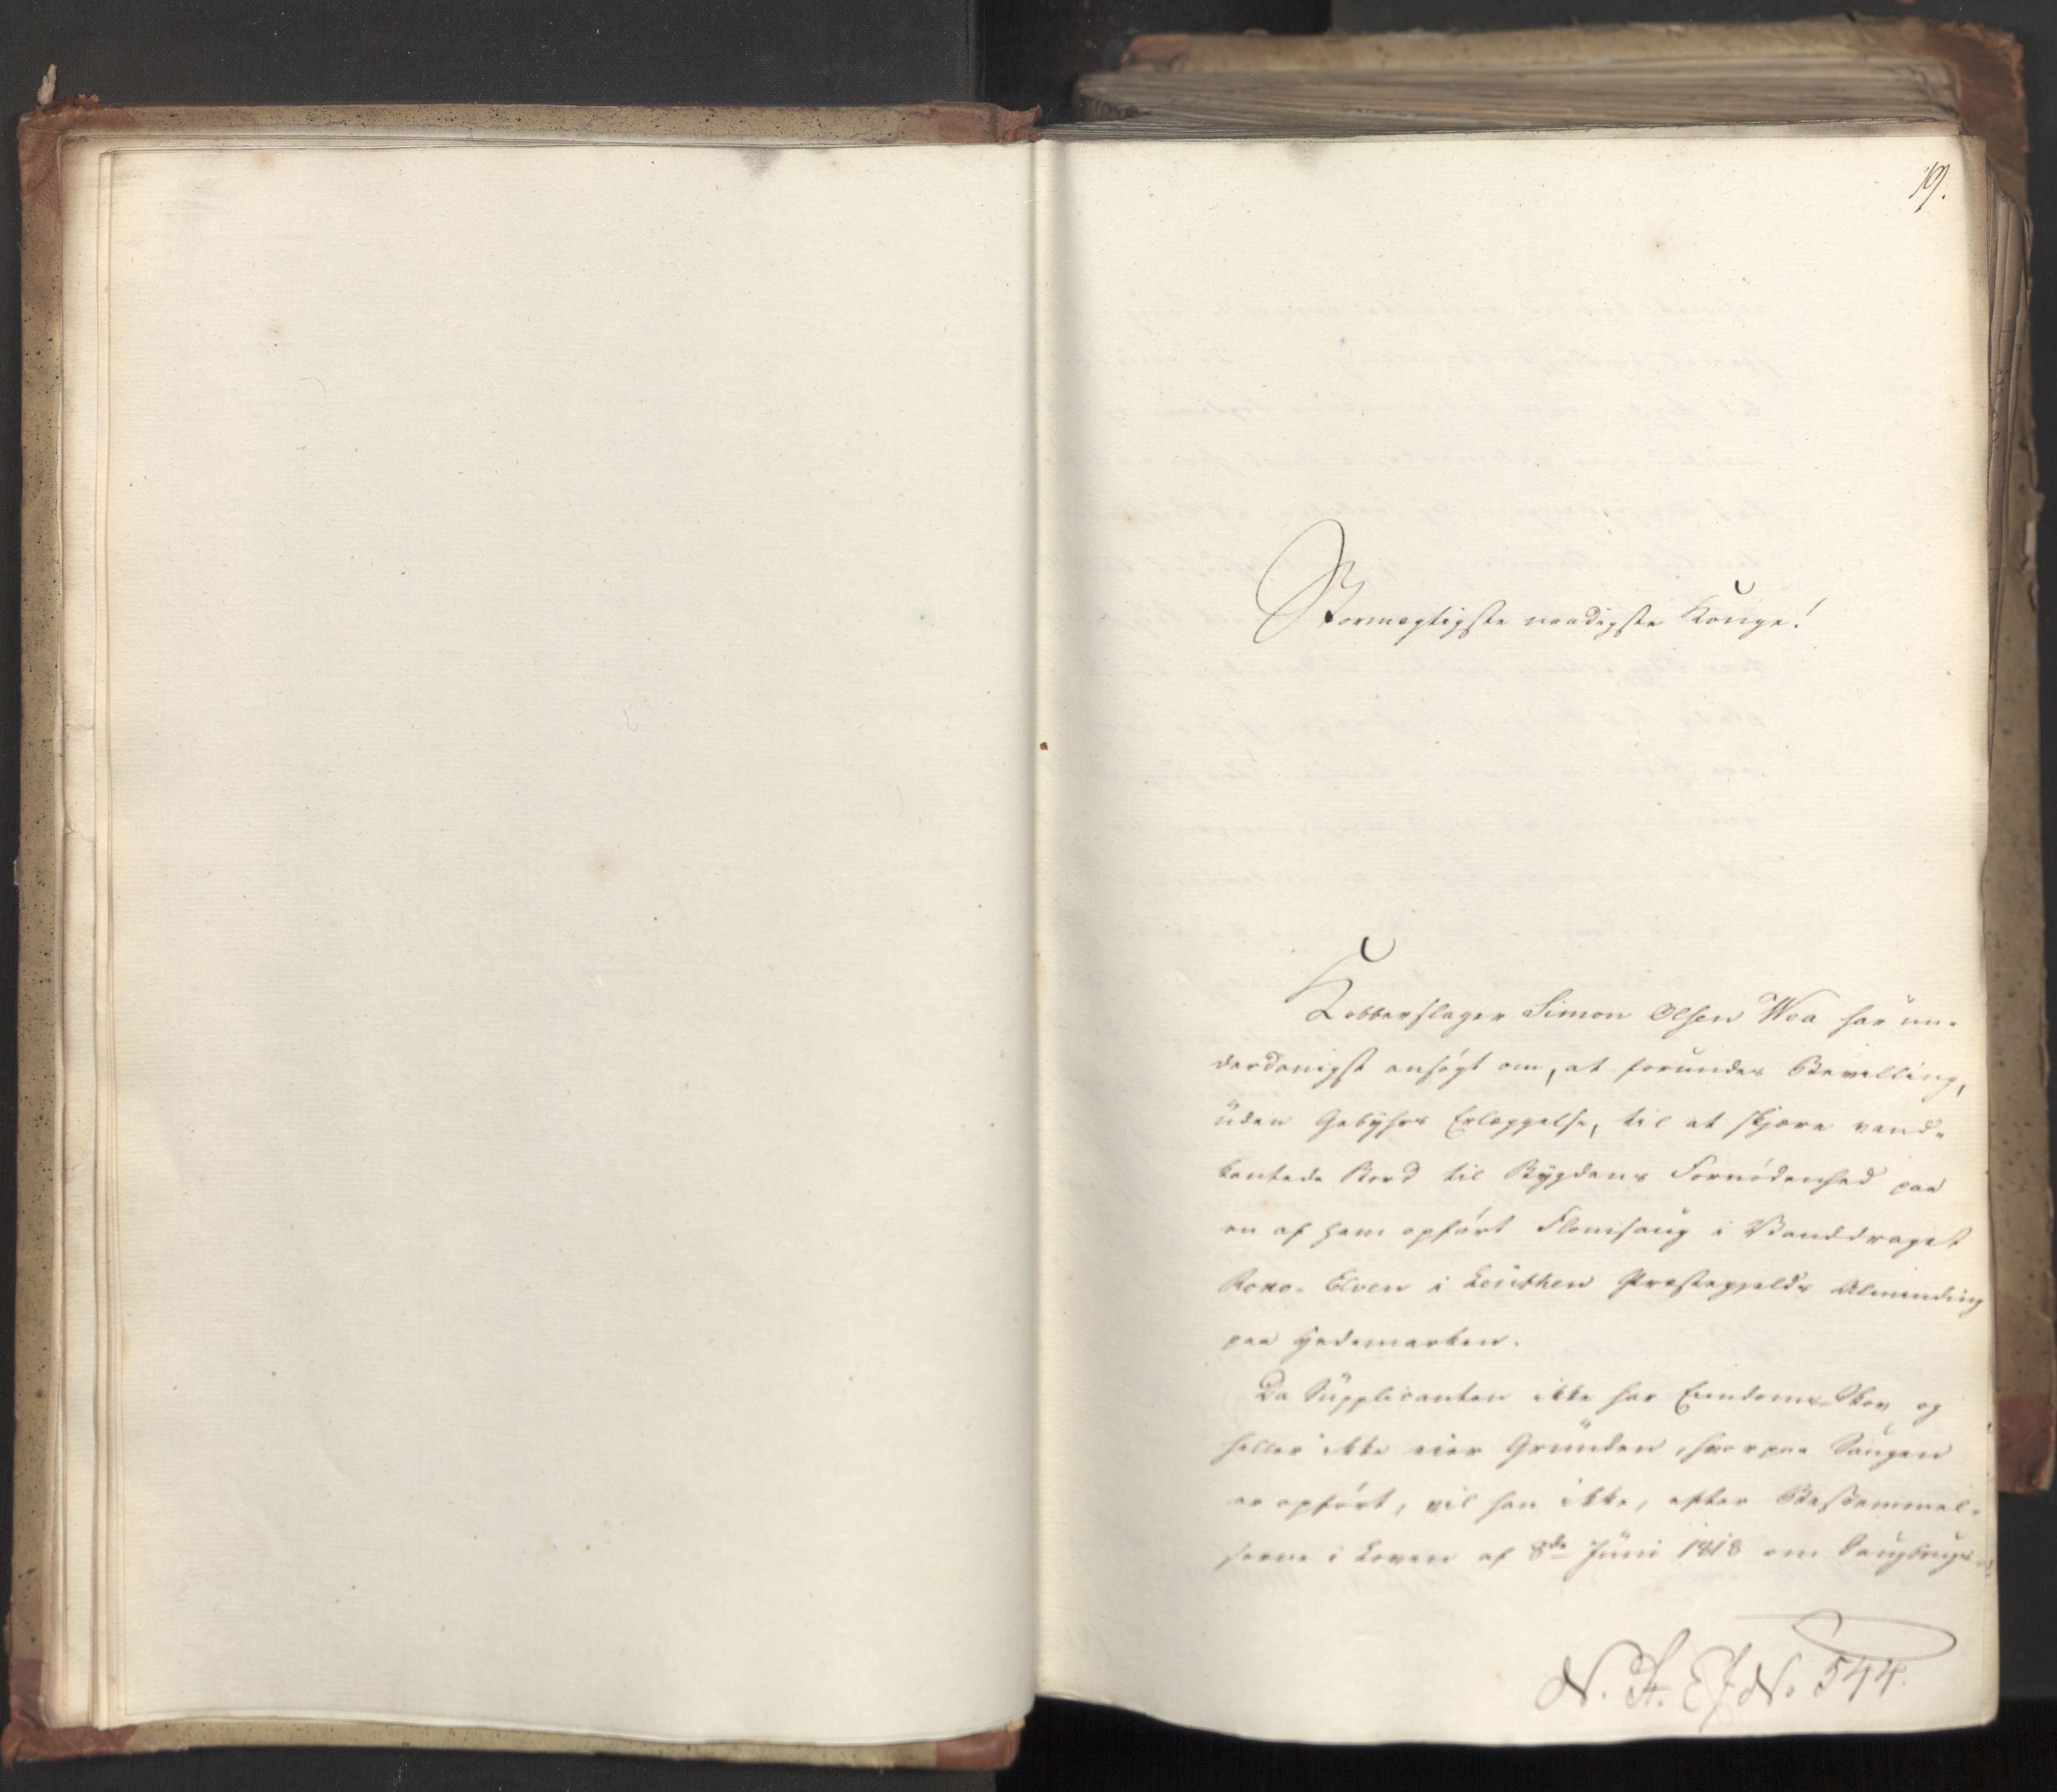 19.
Stormægtigste naadigste Konge!
Kobberslager Simon Olsen Woa har un-
derdanigst ansøgt om, at forundes Bevilling,
uden Gebyhrs Erlæggelse, til at skjære vand-
kantede Bord til Bygdens Fornødenhed paa
en af ham opført Flomsaug i Vanddraget
Roko-Elven i Leuthen Præstegjelds Alminding
paa Hedemarken.
Da Supplicanten ikke har Eiendoms-Skov og
heller ikke eier Grunden, hvorpaa Saugen
er opført, vil han ikke, efter Bestemmel-
serne i Loven af 8de Juni 1818 om Saugbrugs-
N. St. E. J. No 544.